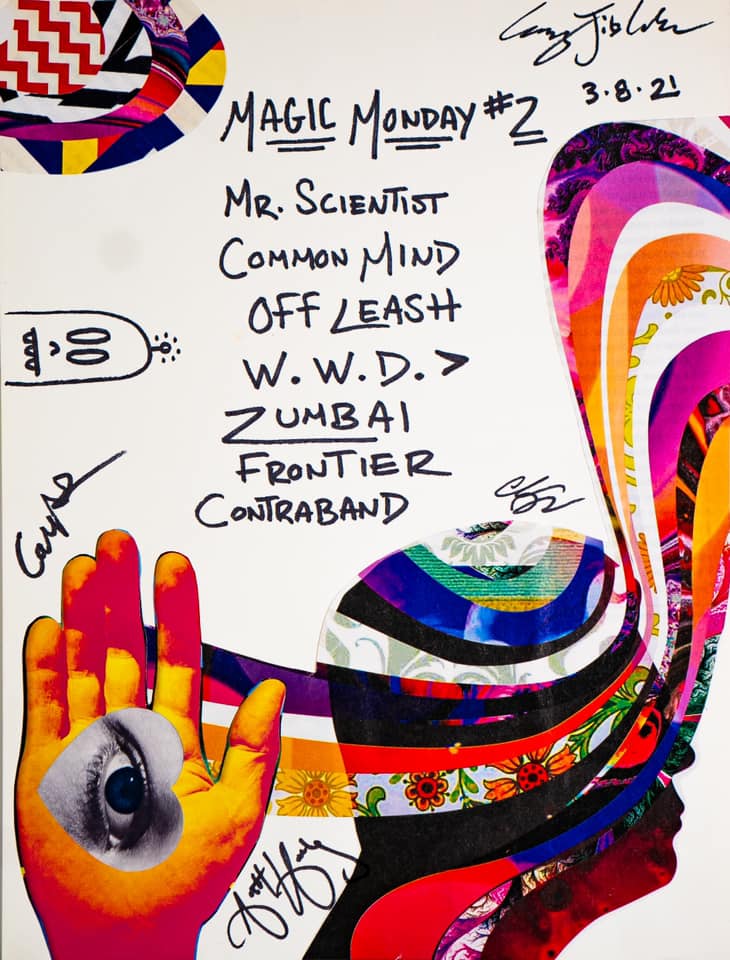 3.8.21
MAGIC MONDAY #2
MR. SCIENTIST
COMMON MIND
OFF LEASH
W.W.D. >
ZUMBAI
FRONTIER
CONTRABAND